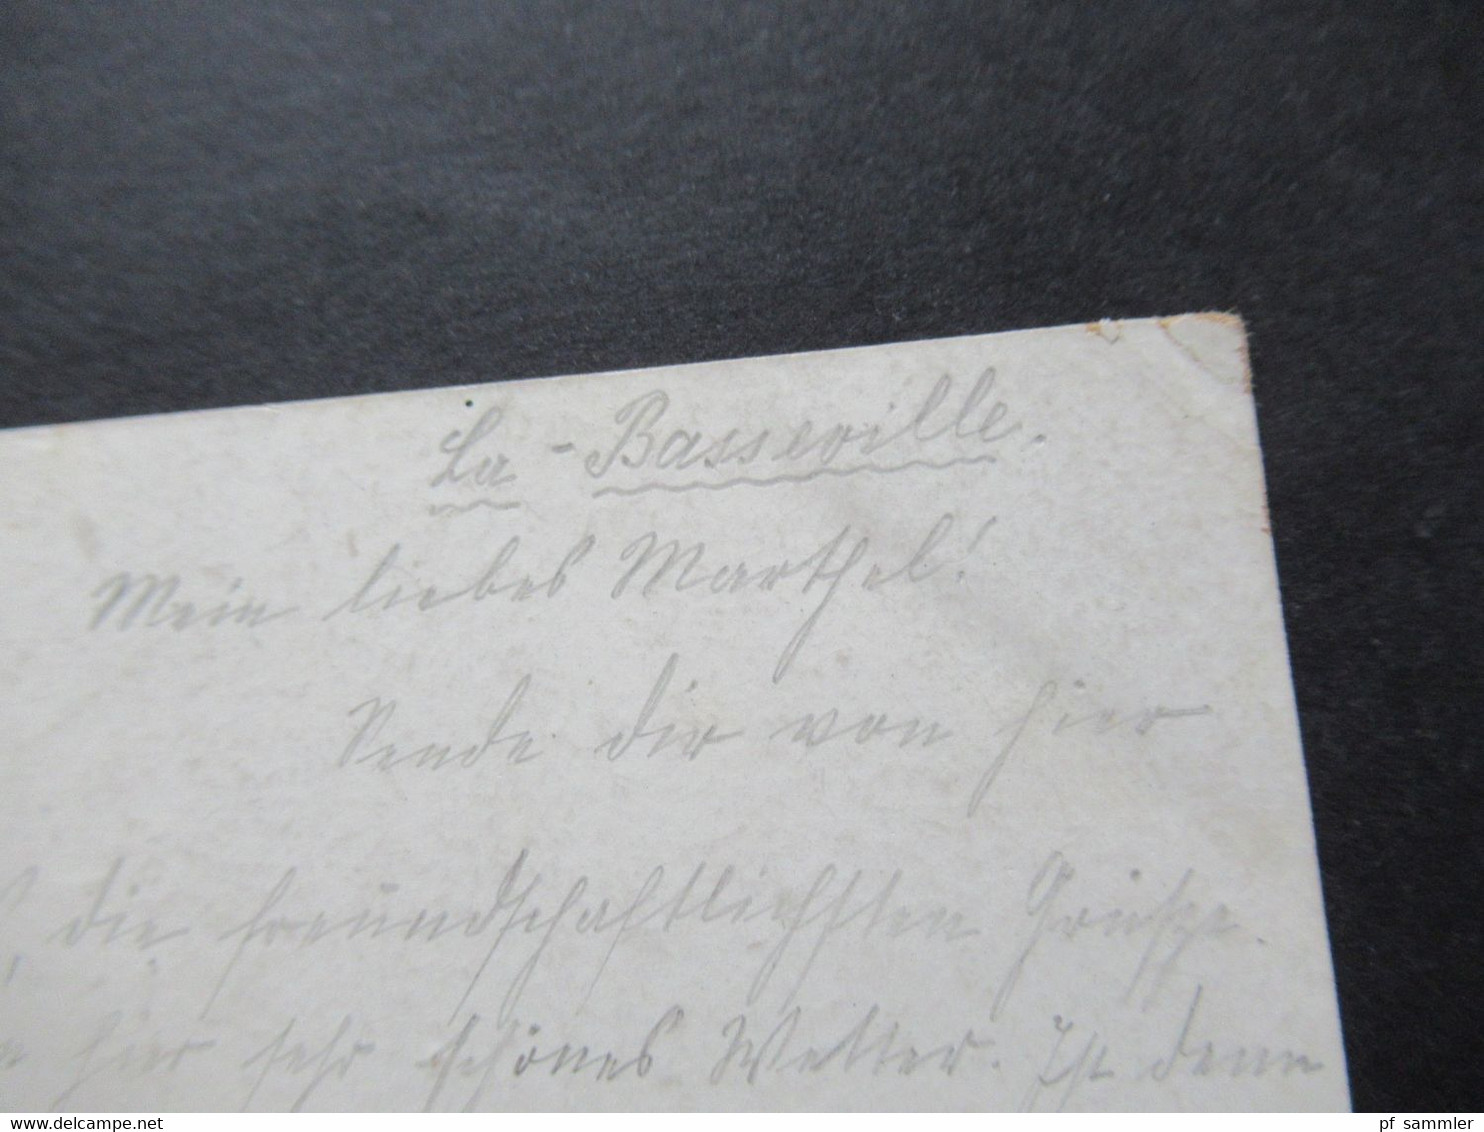 La - Basseville.
Mein liebes Marthel!
Sende dir von hier
die freundschaftlichsten Grüsse.
hier sehr schönes Wetter. Ist denn
www.delcampe.net
pf_sammler